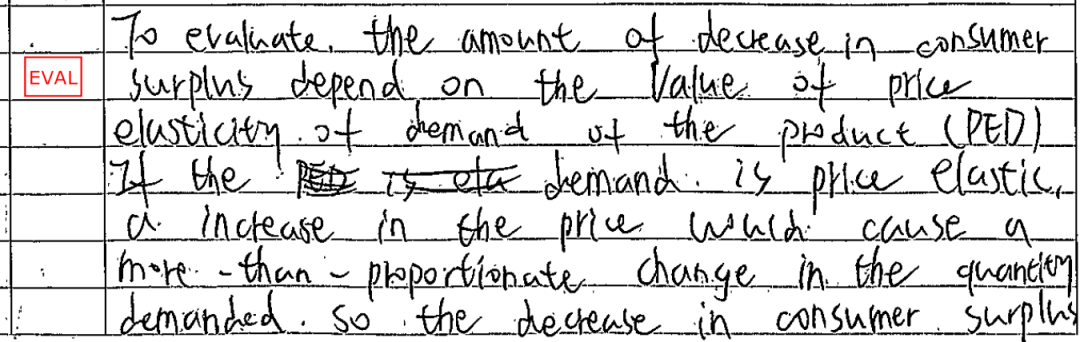 To evaluate, the amount of decrease in consumer
EVAL surplus depend on the value of price
elasticity of demand of the product (PED)
If the demand is price elastic,
a increase in the price would cause a
more-than-proportionate change in the quantity
demanded. so the decrease in consumer surplus